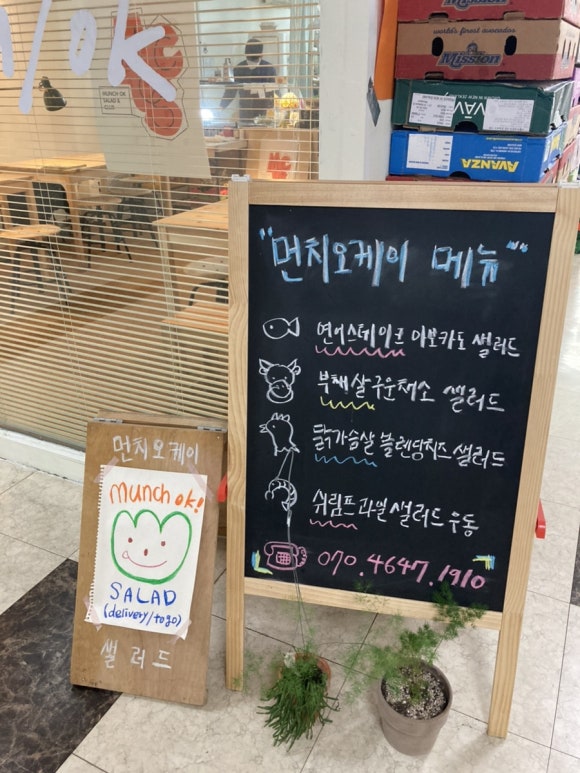 n/ok
MUNCH OK
SALAD &
CLUB
world's finest avocados
Mission
Mission
AVANZA
"먼치오케이 메뉴"
연어스테이크 아보카도 샐러드
부채살 구운채소 샐러드
닭가슴살 블렌딩치즈 샐러드
쉬림프 과일 샐러드 우동
070.4647.1910
먼치오케이
munch ok!
SALAD
(delivery/togo)
샐러드